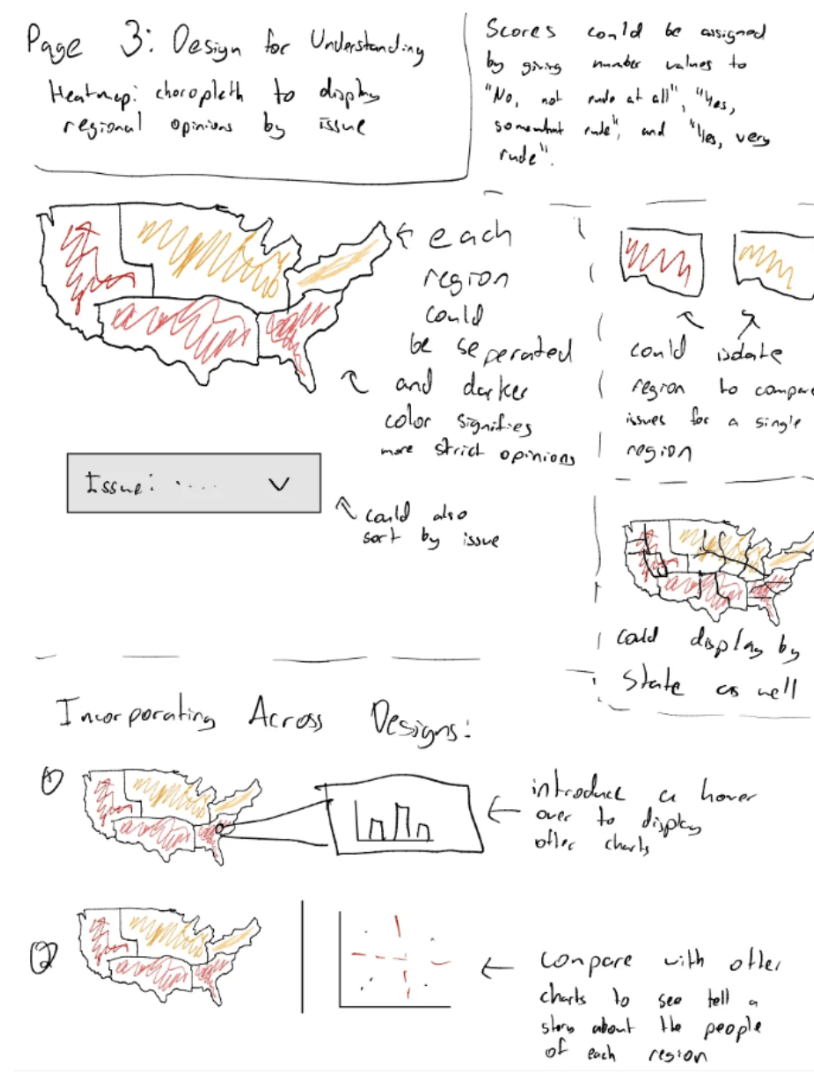 Page 3: Design for Understanding
Heatmap: choropleth to display
regional opinions by issue
Scores could be assigned
by giving number values to
"No, not rude at all", "Yes,
somewhat rude", and "Yes, very
rude".
← each
region
could
be seperated
and darker
color signifies
more strict opinions
could isolate
region to compare
issues for a single
region
Issue: ....
could also
sort by issue
could display by
state as well
Incorporating Across Designs:
1
introduce a hover
over to display
other charts
2
compare with other
charts to see tell a
story about the people
of each region